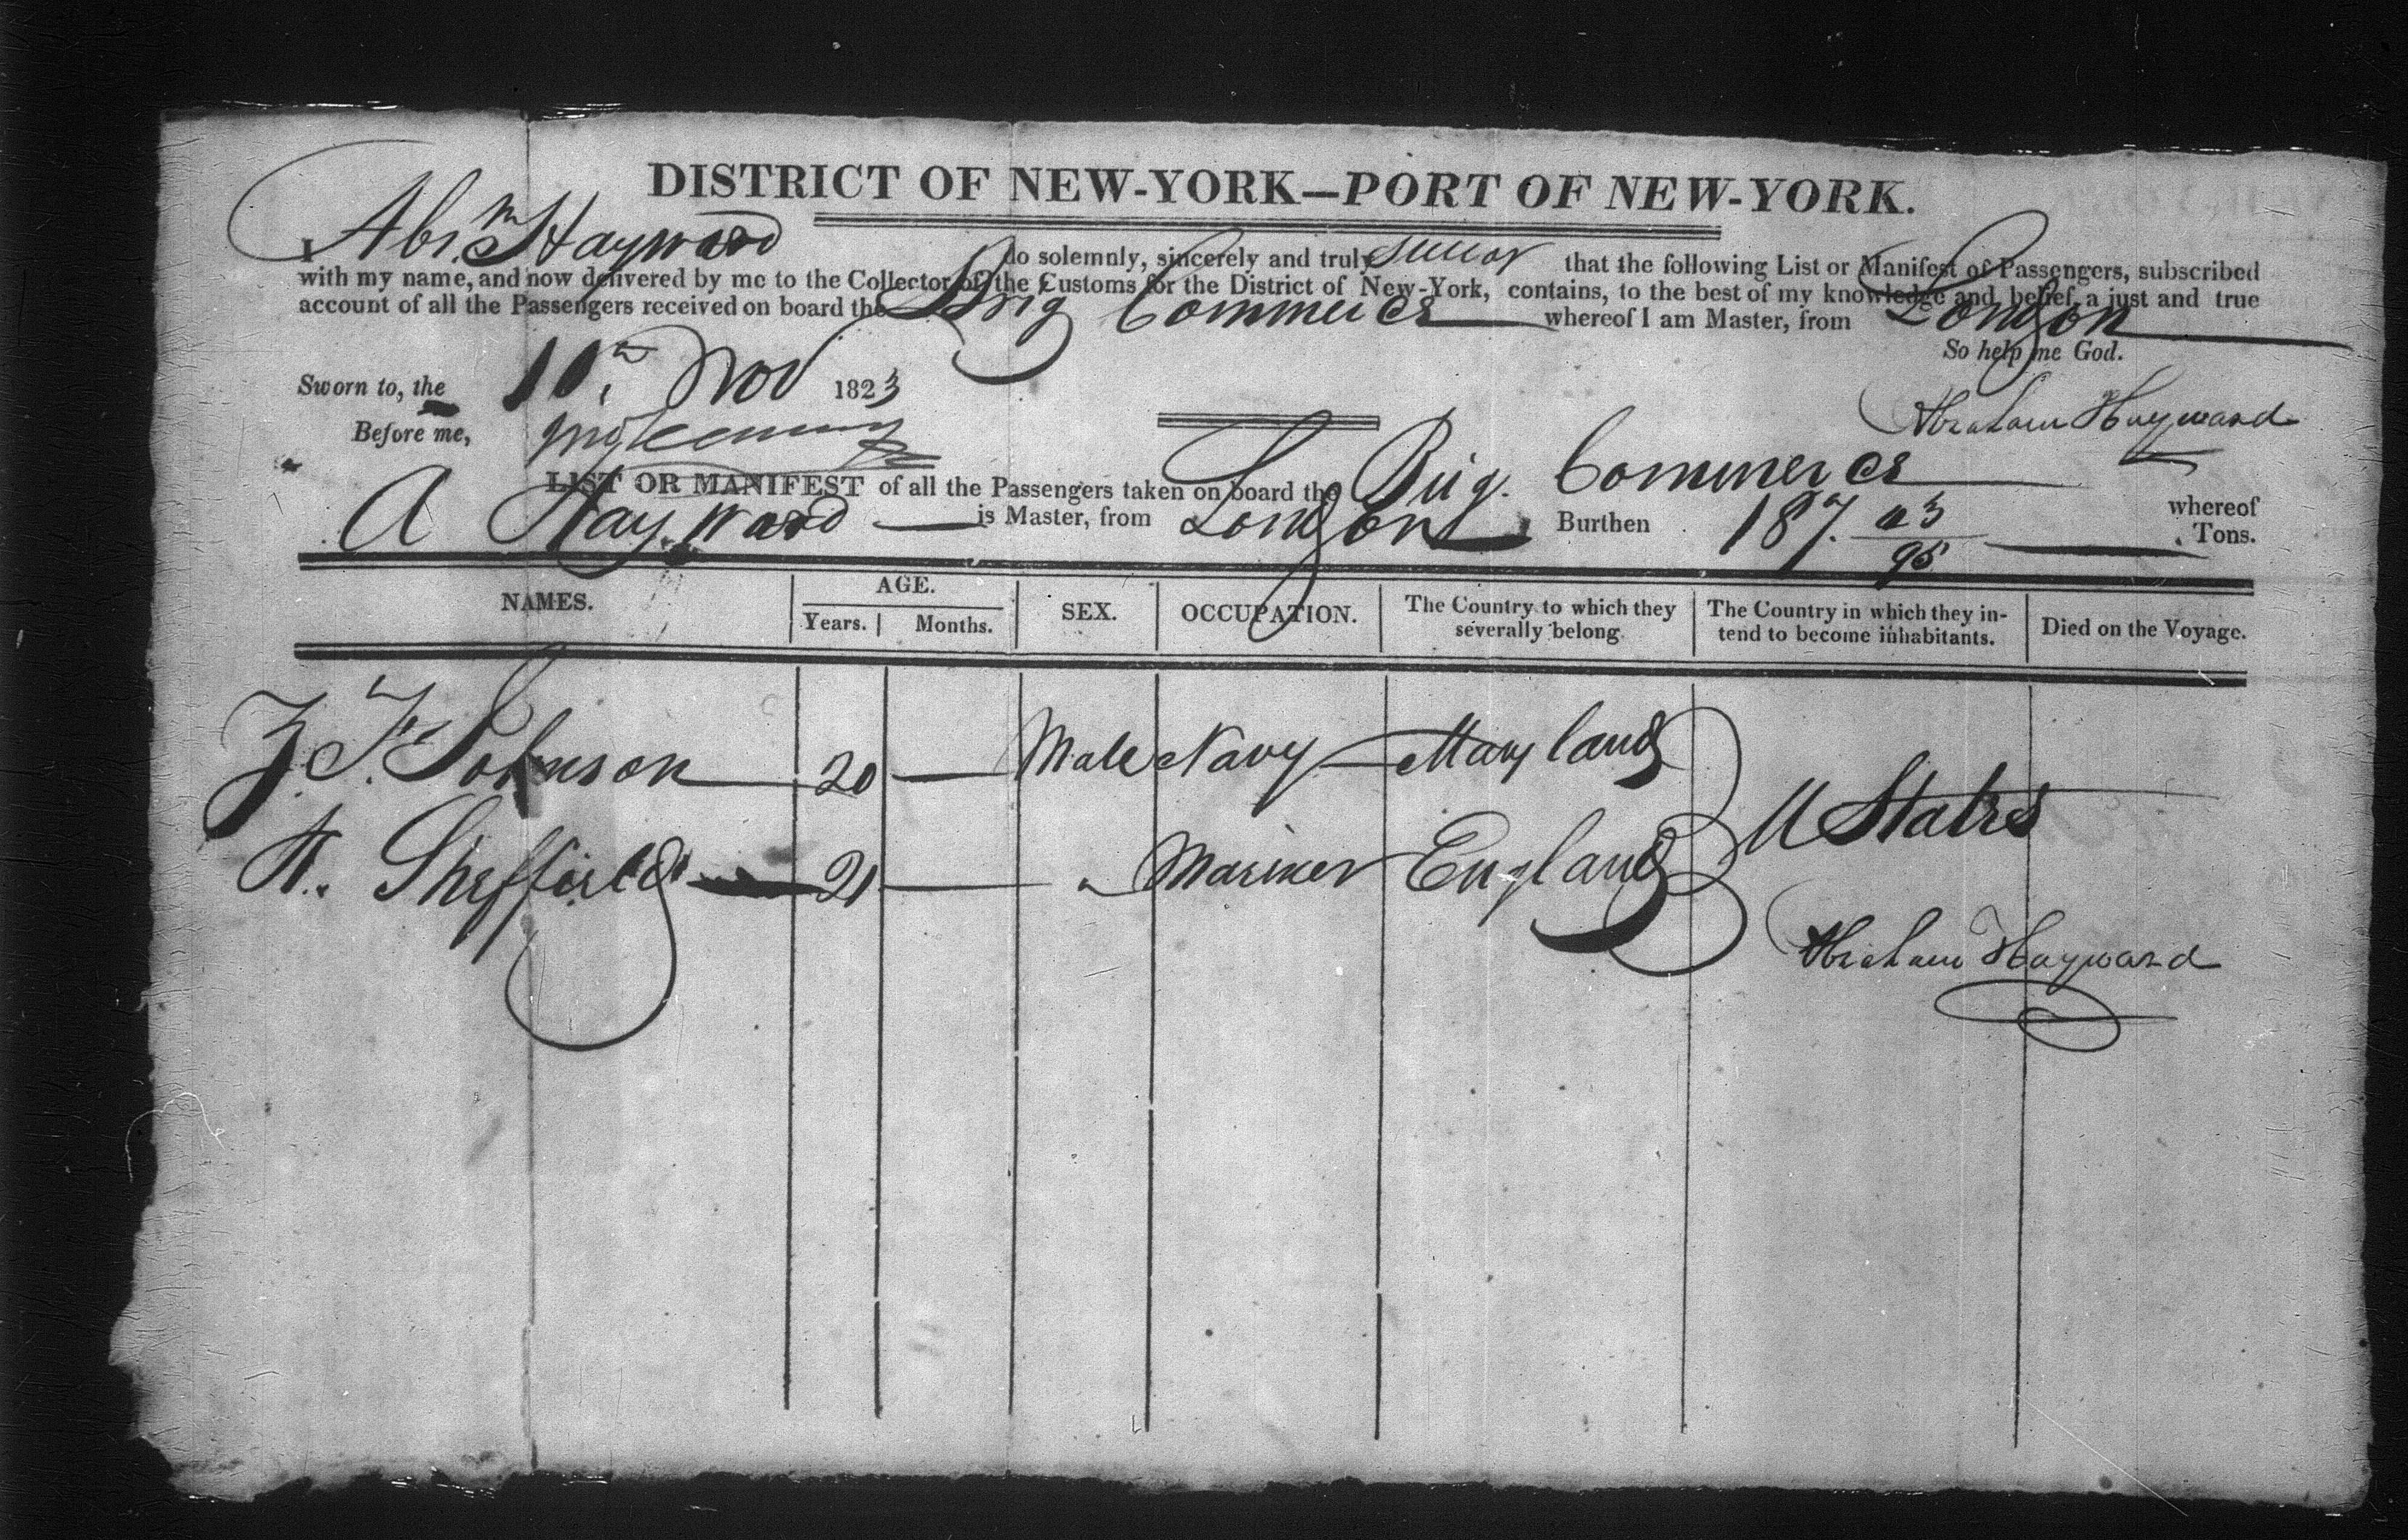 DISTRICT OF NEW-YORK—PORT OF NEW-YORK.
I Abrm Hayward do solemnly, sincerely and truly swear that the following List or Manifest of Passengers, subscribed
with my name, and now delivered by me to the Collector of the Customs for the District of New-York, contains, to the best of my knowledge and belief, a just and true
account of all the Passengers received on board the Brig Commerce whereof I am Master, from London
So help me God.
Sworn to, the 10th Nov 1823
Abraham Hayward
Before me,
LIST OR MANIFEST of all the Passengers taken on board the Brig. Commerce whereof
A Hayward is Master, from London Burthen 187. 43/95 Tons.
NAMES. AGE. Years. Months. SEX. OCCUPATION. The Country to which they severally belong. The Country in which they intend to become inhabitants. Died on the Voyage.
Z. F. Johnson 20 — Male Navy Maryland
U States
Sheffield 21 — " Mariner England
Abraham Hayward